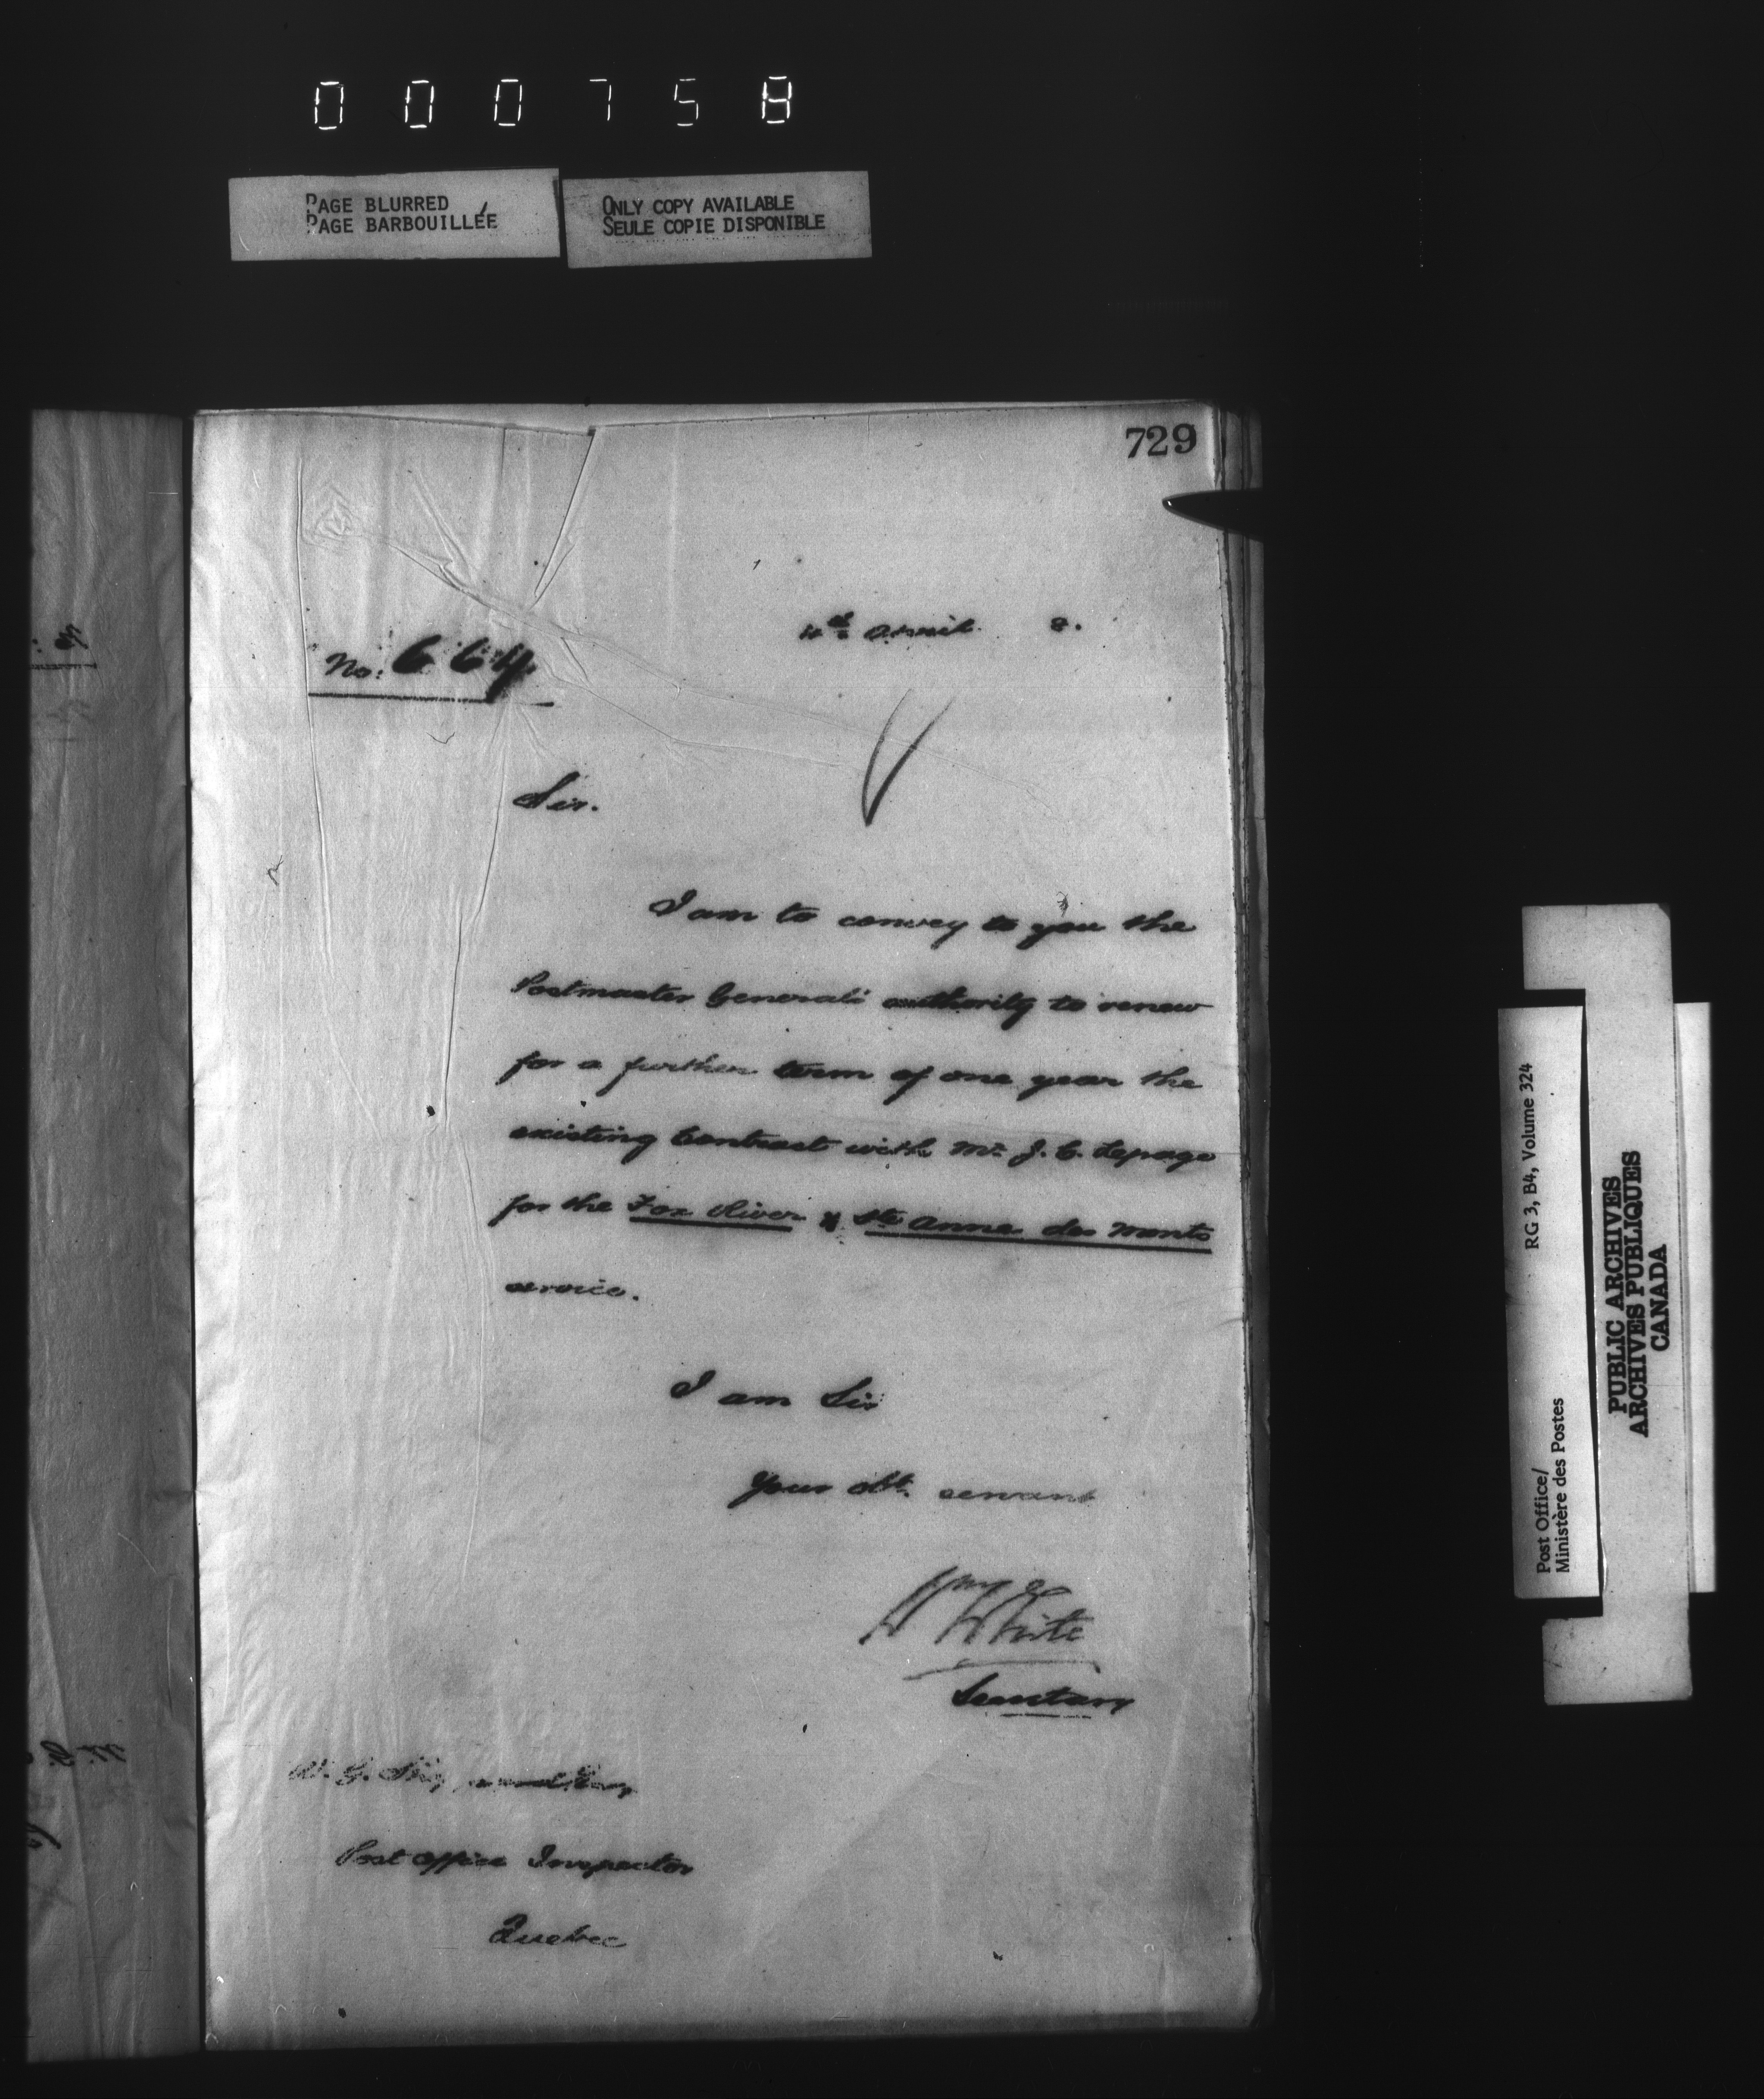 000758
PAGE BLURRED
PAGE BARBOUILLÉE
ONLY COPY AVAILABLE
SEULE COPIE DISPONIBLE
729
4th April 8.
No: 664
Sir.
I am to convey to you the
Postmaster General's authority to renew
for a further term of one year the
existing Contract with Mr. J. C. Lepage
for the Fox River & Ste Anne des Monts
service.
I am Sir
Your obt. servant
Wm White
Secretary
W. G.
Post Office Inspector
Quebec
Post Office/
Ministère des Postes
RG 3, B4, Volume 324
PUBLIC ARCHIVES
ARCHIVES PUBLIQUES
CANADA